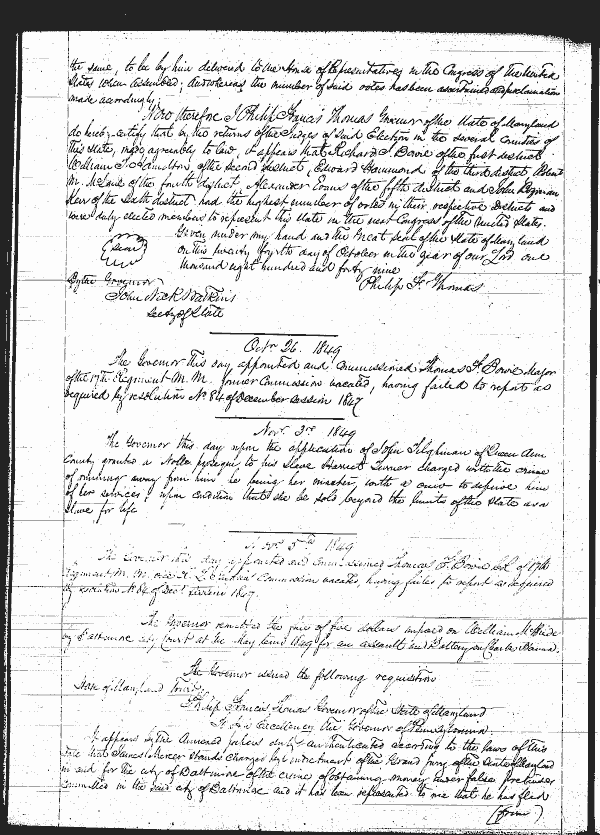 the same, to be by him delivered to the House of Representatives in the Congress of the United
States when assembled; and whereas the number of said votes has been ascertained & proclamation
made accordingly,
Now therefore I Philip Francis Thomas Governor of the State of Maryland
do hereby certify that by the returns of the Judges of said Election in the several Counties of
this State, made agreeably to law, it appears that Richard J. Bowie of the first district
William T. Hamilton, of the second district, Edward Hammond of the third district, Robert
M. McLane of the fourth district, Alexander Evans of the fifth district and John Bozman
Kerr of the sixth district had the highest number of votes in their respective districts and
were duly elected members to represent this State in the next Congress of the United States.
Given under my hand and the Great Seal of the State of Maryland
on this twenty fourth day of October in the year of our Lord one
thousand eight hundred and forty nine
Philip F. Thomas
By the Governor
John Nick Watkins
Secty of State
Octr 26. 1849
The Governor this day appointed and Commissioned Thomas F. Bowie Major
of the 17th Regiment M. M. former Commission vacated, having failed to report as
required by resolution No 84 of December session 1847
Novr. 3rd 1849
The Governor this day upon the application of John Tilghman of Queen Ann
County granted a Nolle prosequi to his Slave Harriet Turner charged with the crime
of running away from him he being her master, with a view to deprive him
of her services; upon condition that she be sold beyond the limits of the State as a
Slave for life
Novr 5th 1849
The Governor this day appointed and Commissioned Thomas F. Bowie Col of 17th
Regiment M. M. vice Commission vacated, having failed to report as required
by resolution No 84 of Decr Session 1847.
The Governor remitted the fine of five dollars imposed on William McBride
by Baltimore city Court at the May term 1849 for an assault and Battery on Charles
The Governor issued the following requisition
State of Maryland
Philip Francis Thomas Governor of the State of Maryland
To his Excellency the Governor of Pennsylvania
It appears by the Annexed papers duly authenticated according to the laws of this
State that James Mercer stands charged by indictment of the Grand Jury of the State of Maryland
in and for the city of Baltimore of the crime of obtaining money under false pretenses
committed in the said city of Baltimore and it has been represented to me that he has fled
(from)